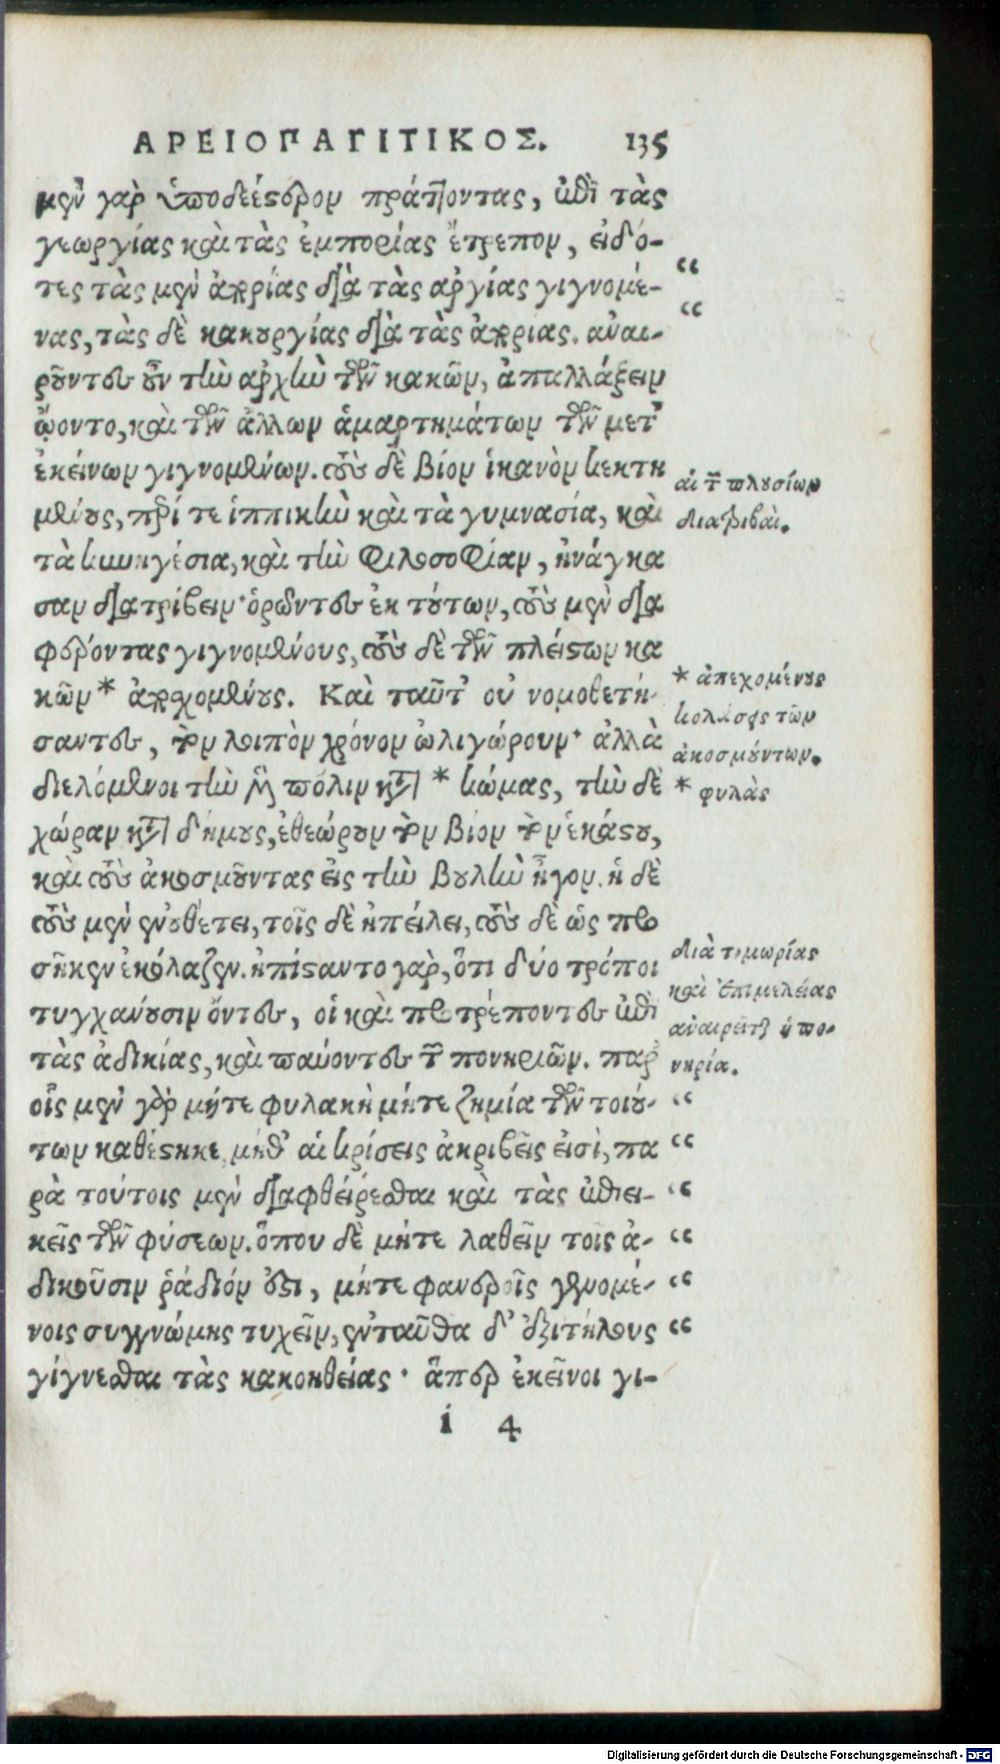 ΑΡΕΙΟΠΑΓΙΤΙΚΟΣ. 135
μὲν γὰρ ὑποδεέστερον πράττοντας, ἐπὶ τὰς
γεωργίας καὶ τὰς ἐμπορίας ἔτρεπον, εἰδό-
τες τὰς μὲν ἀπορίας διὰ τὰς ἀργίας γιγνομέ- “
νας, τὰς δὲ κακουργίας διὰ τὰς ἀπορίας. ἀναι- “
ροῦντες οὖν τὴν ἀρχὴν τῶν κακῶν, ἀπαλλάξειν
ᾤοντο, καὶ τῶν ἄλλων ἁμαρτημάτων τῶν μετ'
ἐκείνων γιγνομένων. τοὺς δὲ βίον ἱκανὸν κεκτη
μένους, περί τε ἱππικὴν καὶ τὰ γυμνασία, καὶ
τὰ κυνηγέσια, καὶ τὴν φιλοσοφίαν, ἠνάγκα
σαν διατρίβειν· ὁρῶντες ἐκ τούτων, τοὺς μὲν δια
φέροντας γιγνομένους, τοὺς δὲ τῶν πλείστων κα
κῶν * ἀπεχομένους. Καὶ ταῦτ' οὐ νομοθετή-
σαντες, τὸν λοιπὸν χρόνον ὠλιγώρουν· ἀλλὰ
διελόμενοι τὴν μὲν πόλιν κατὰ * κώμας, τὴν δὲ
χώραν κατὰ δήμους, ἐθεώρουν τὸν βίον τὸν ἑκάστου,
καὶ τοὺς ἀκοσμοῦντας εἰς τὴν βουλὴν ἦγον. ἡ δὲ
τοὺς μὲν ἐνουθέτει, τοῖς δὲ ἠπείλει, τοὺς δὲ ὡς προ
σῆκεν ἐκόλαζεν. ἠπίσταντο γὰρ, ὅτι δύο τρόποι
τυγχάνουσιν ὄντες, οἱ καὶ προτρέποντες ἐπὶ
τὰς ἀδικίας, καὶ παύοντες τῶν πονηριῶν. παρ'
οἷς μὲν γὰρ μήτε φυλακὴ μήτε ζημία τῶν τοιού- “
των καθέστηκε, μήθ' αἱ κρίσεις ἀκριβεῖς εἰσὶ, πα “
ρὰ τούτοις μὲν διαφθείρεσθαι καὶ τὰς ἐπιει- “
κεῖς τῶν φύσεων. ὅπου δὲ μήτε λαθεῖν τοῖς ἀ- “
δικοῦσιν ῥᾴδιόν ἐστι, μήτε φανεροῖς γενομέ- “
νοις συγγνώμης τυχεῖν, ἐνταῦθα δ' ἐξιτήλους “
γίγνεσθαι τὰς κακοηθείας· ἅπερ ἐκεῖνοι γι-
i 4
αἱ τῶν πλουσίων
διατριβαὶ.
* ἀπεχομένους
κολάσεις τῶν
ἀκοσμούντων.
* φυλὰς
διὰ τιμωρίας
καὶ ἐπιμελείας
ἀναιρεῖται ἡ πο-
νηρία.
Digitalisierung gefördert durch die Deutsche Forschungsgemeinschaft - DFG